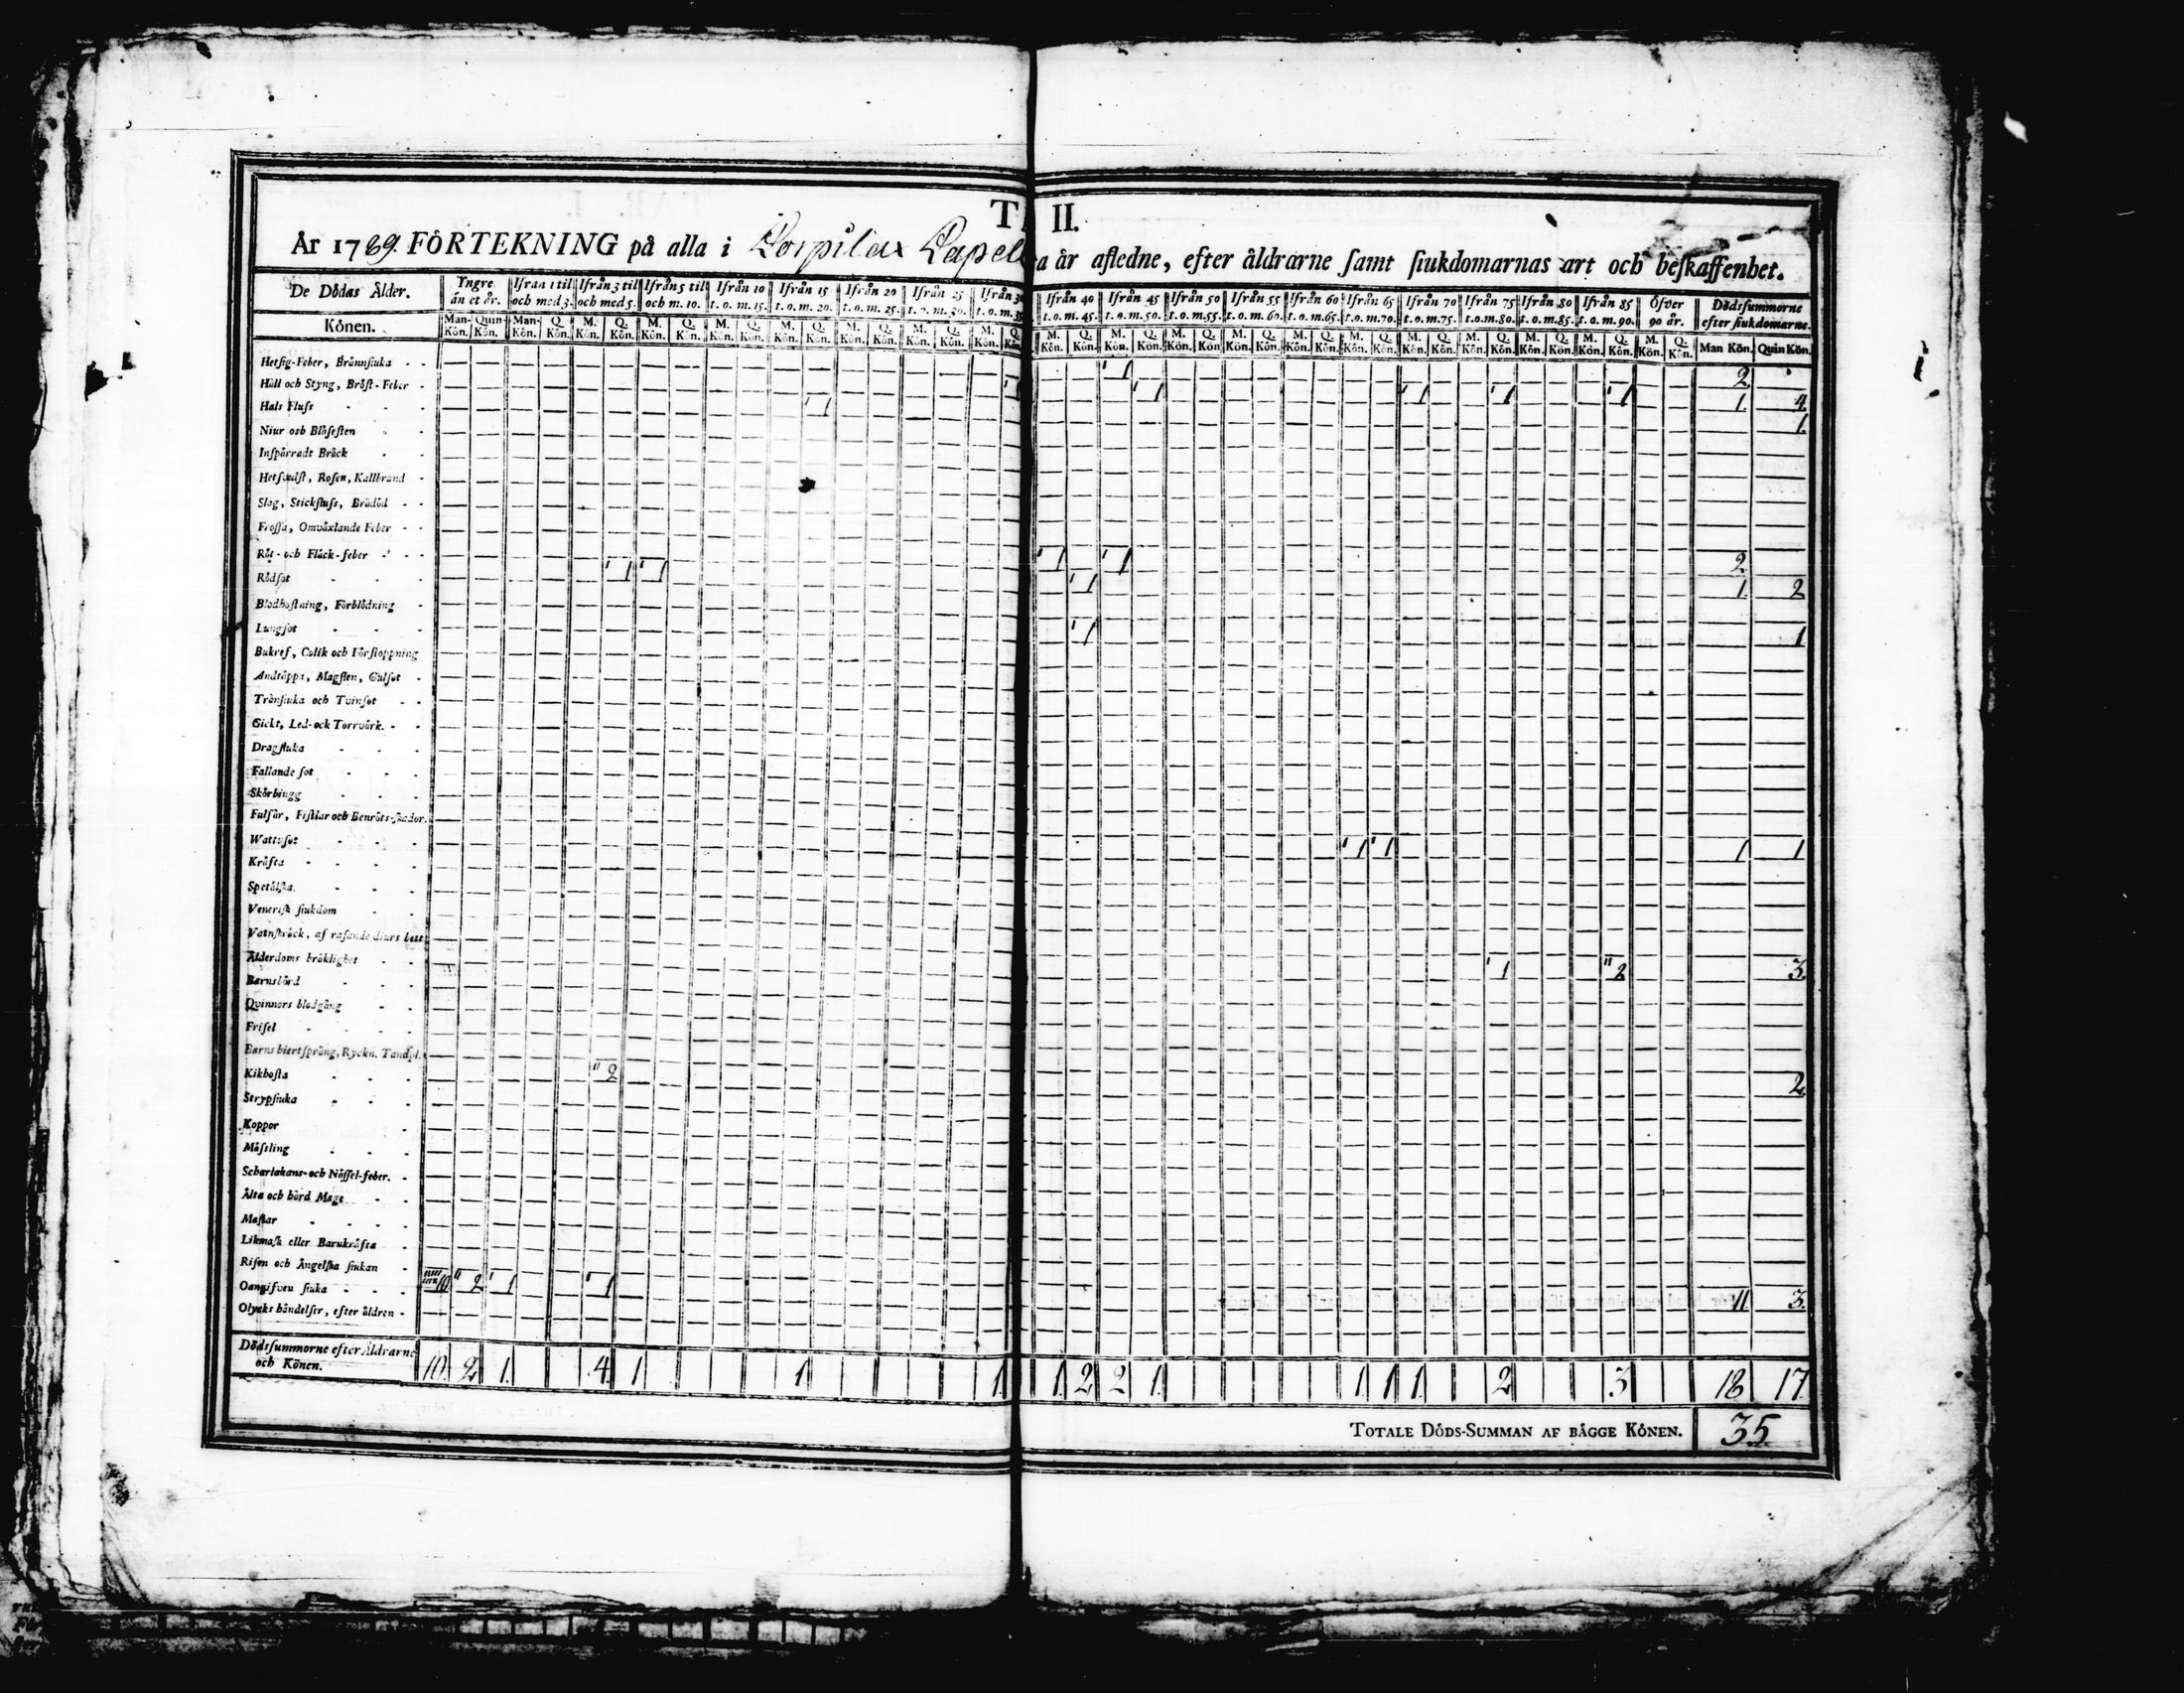 T II.
År 1789. FÖRTEKNING på alla i Korpilax Capell a år afledne, efter åldrarne ſamt ſiukdomarnas art och beſkaffenhet.
De Dödas Ålder. Yngre än et år. Ifrån 1 til och med 3. Ifrån 3 til och med 5. Ifrån 5 til och m. 10. Ifrån 10 t. o. m. 15. Ifrån 15 t. o. m. 20. Ifrån 20 t. o. m. 25. Ifrån 25 t. o. m. 30. Ifrån 30 t. o. m. 35 Ifrån 40 t. o. m. 45. Ifrån 45 t. o. m. 50. Ifrån 50 t. o. m. 55. Ifrån 55 t. o. m. 60. Ifrån 60 t. o. m. 65. Ifrån 65 t. o. m. 70. Ifrån 70 t. o. m. 75. Ifrån 75 t. o. m. 80. Ifrån 80 t. o. m. 85. Ifrån 85 t. o. m. 90. Öfver 90 år. Dödsſummorne efter ſiukdomarne.
Könen. Man-Kön. Quin-Kön. Man-Kön. Q. Kön. M. Kön. Q. Kön. M. Kön. Q. Kön. M. Kön. Q. Kön. M. Kön. Q. Kön. M. Kön. Q. Kön. M. Kön. Q. Kön. M. Kön. Q. Kön. M. Kön. Q. Kön. M. Kön. Q. Kön. M. Kön. Q. Kön. M. Kön. Q. Kön. M. Kön. Q. Kön. M. Kön. Q. Kön. M. Kön. Q. Kön. M. Kön. Q. Kön. M. Kön. Q. Kön. M. Kön. Q. Kön. M. Kön. Q. Kön. Man Kön. Quin Kön.
Hetſig-Feber, Brännſiuka 1 2
Håll och Styng, Bröſt-Feber 1 1 1 1 1 1. 4
Hals Fluſs 1 1.
Niur och Blåſeſten
Inſpärradt Bråck
Hetſvulſt, Roſen, Kallbrand
Slag, Stickfluſs, Brådöd
Froſſa, Omväxlande Feber
Röt- och Fläck-feber 1 1 2.
Rödſot 1 1 1 1. 2
Blodhoſtning, Förblödning
Lungſot 1 1
Bukref, Colik och Förſtoppning
Andtäppa, Magſten, Gulſot
Trånſiuka och Tvinſot
Gickt, Led-och Torrvärk.
Dragſiuka
Fallande ſot
Skörbiugg
Fulſår, Fiſtlar och Benröts-ſkador.
Wattuſot 1 1 1 1
Kräfta
Spetälſka.
Veneriſk ſiukdom
Vatnſkräck, af raſande diurs bett
Ålderdoms bräklighet 1 2 3.
Barnsbörd
Qvinnors blodgång
Friſel
Barns hiertſprång, Ryckn. Tandpl.
Kikhoſta 2 2
Strypſiuka
Koppor
Mäſsling
Scharlakans- och Näſſel-feber.
Älta och hård Mage
Maſkar
Likmaſk eller Barnkräfta
Riſen och Ängelſka ſiukan
Oangifven ſiuka 10 2 1 1 11 3.
Olycks händelſer, efter åldren
Dödsſummorne efter Åldrarne och Könen. 10. 2 1. 4. 1 1 1. 1. 2 2 1. 1 1 1. 2 3. 18 17.
TOTALE DÖDS-SUMMAN AF BÄGGE KÖNEN. 35.